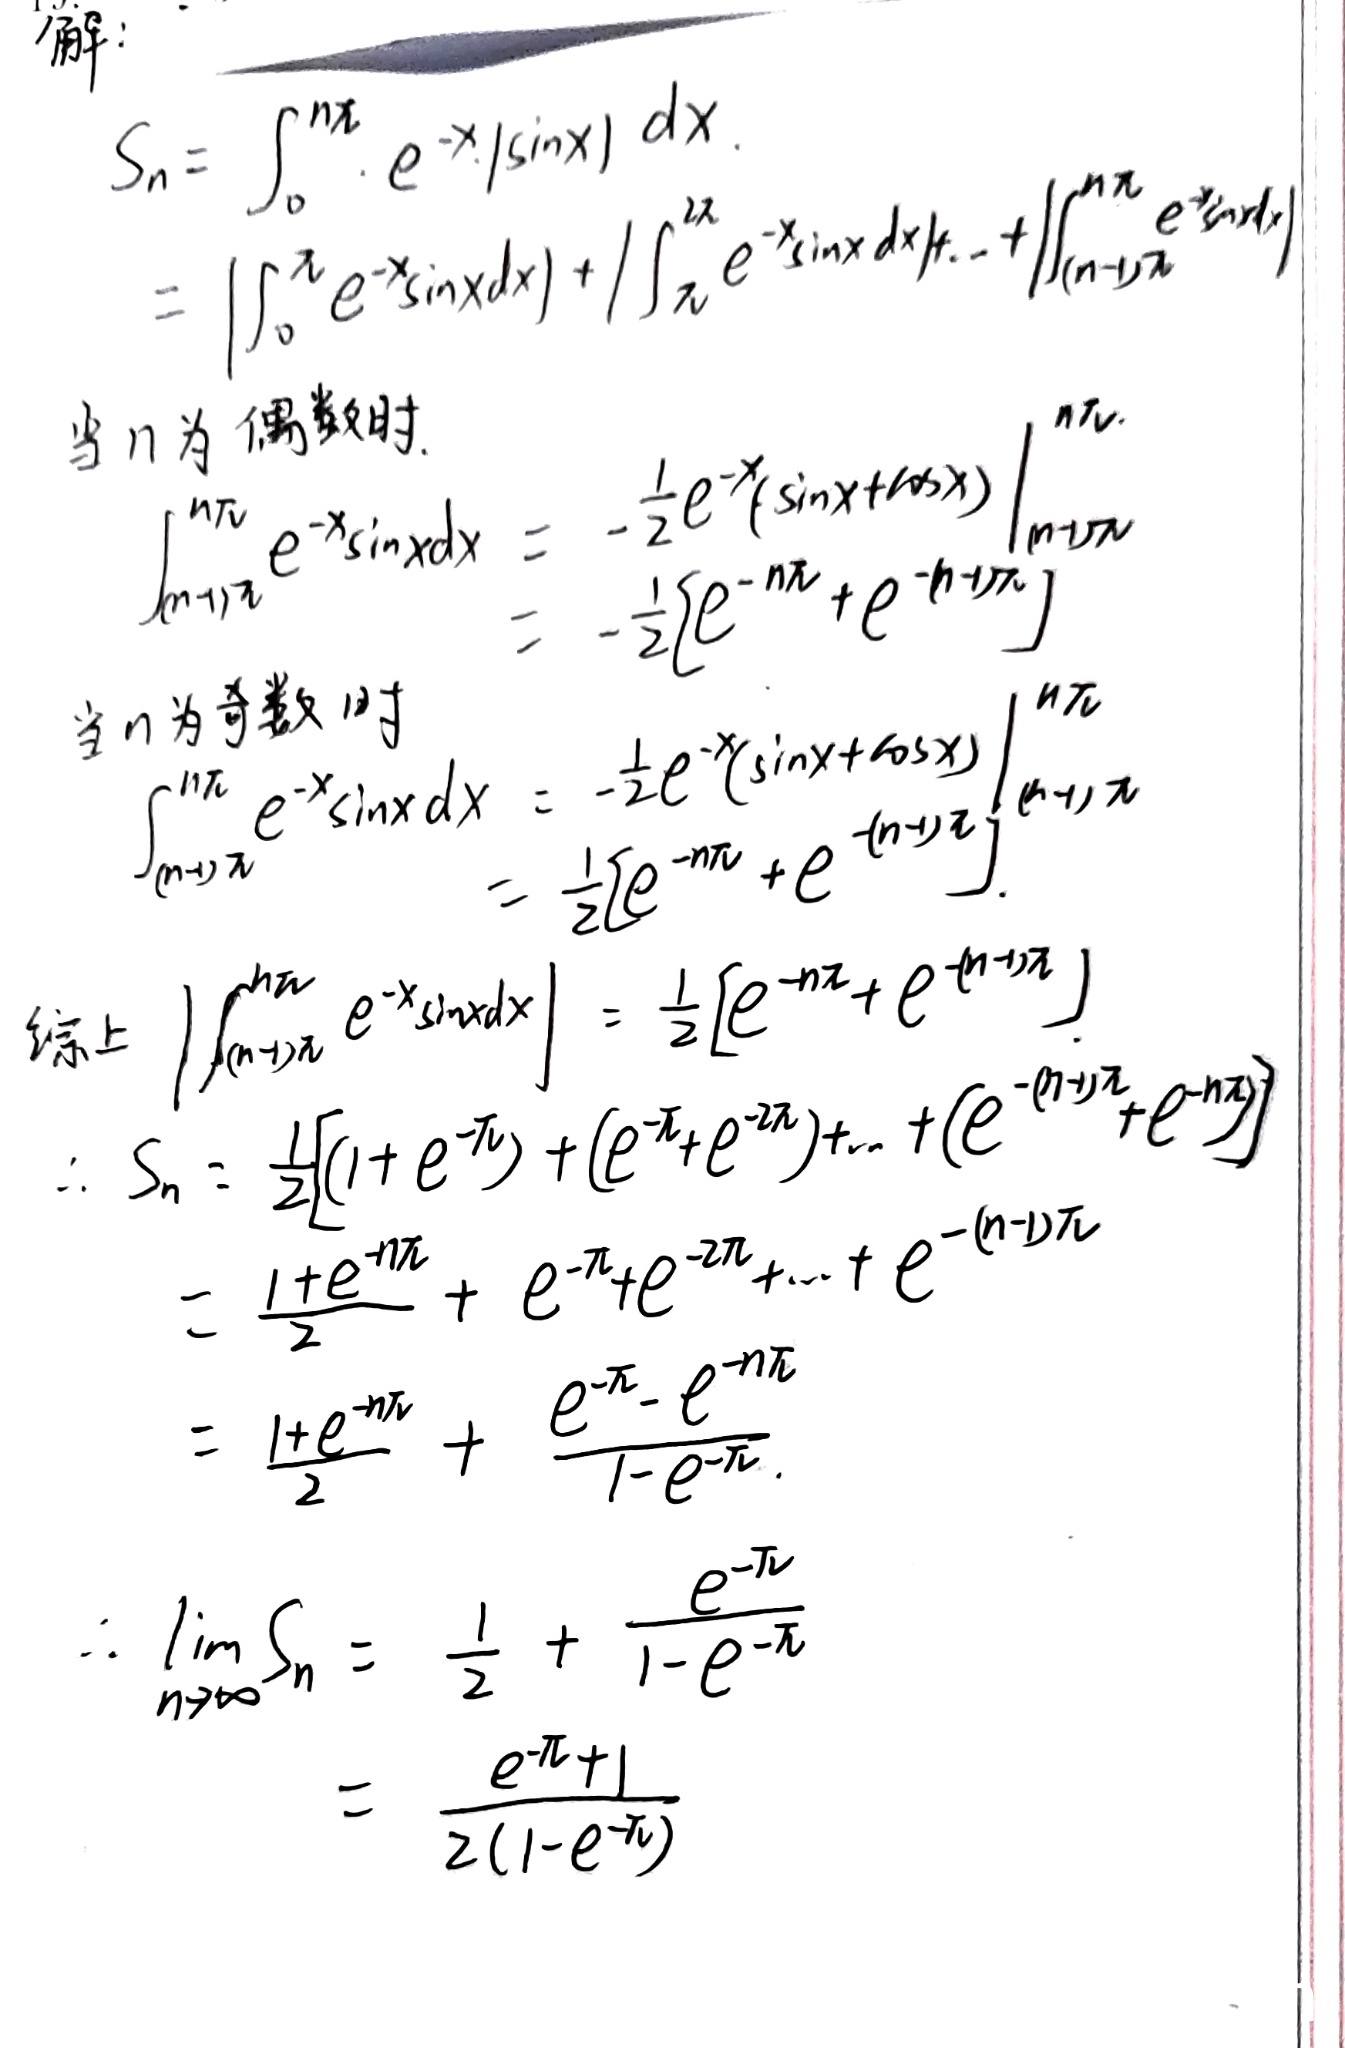 解:
Sₙ = ∫₀^{nπ} e^{-x}|sinx| dx.
= |∫₀^{π} e^{-x}sinxdx| + |∫_{π}^{2π} e^{-x}sinxdx|+...+|∫_{(n-1)π}^{nπ} e^{-x}sinxdx|
当n为偶数时.
∫_{(n-1)π}^{nπ} e^{-x}sinxdx = -½e^{-x}(sinx+cosx)|_{(n-1)π}^{nπ}.
= -½[e^{-nπ}+e^{-(n-1)π}]
当n为奇数时
∫_{(n-1)π}^{nπ} e^{-x}sinxdx = -½e^{-x}(sinx+cosx)|_{(n-1)π}^{nπ}
= ½[e^{-nπ}+e^{-(n-1)π}].
综上 |∫_{(n-1)π}^{nπ} e^{-x}sinxdx| = ½[e^{-nπ}+e^{-(n-1)π}].
∴ Sₙ = ½[(1+e^{-π})+(e^{-π}+e^{-2π})+...+(e^{-(n-1)π}+e^{-nπ})]
= (1+e^{-nπ})/2 + e^{-π}+e^{-2π}+...+e^{-(n-1)π}
= (1+e^{-nπ})/2 + (e^{-π}-e^{-nπ})/(1-e^{-π}).
∴ lim_{n→∞} Sₙ = 1/2 + e^{-π}/(1-e^{-π})
= (e^{-π}+1)/(2(1-e^{-π}))